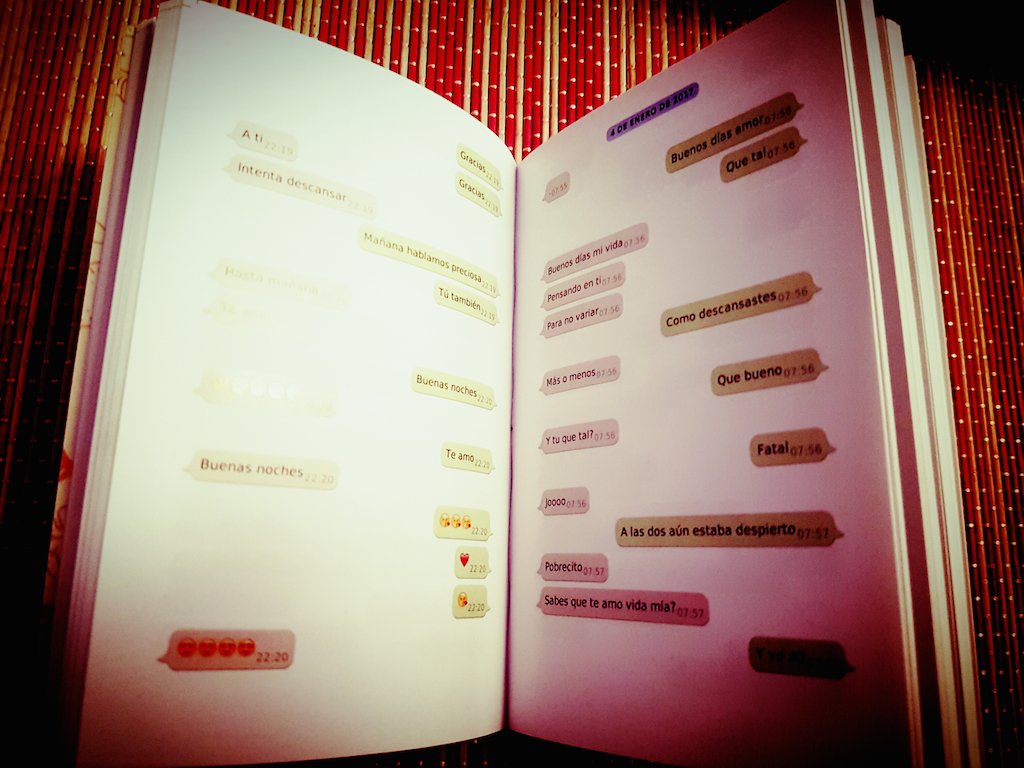 A ti 22:19
Gracias 22:19
Intenta descansar 22:19
Gracias 22:19
Mañana hablamos preciosa 22:19
Hasta mañana
Tú también 22:19
Te
Buenas noches 22:20
Te amo 22:20
Buenas noches 22:20
22:20
22:20
22:20
22:20
4 DE ENERO DE 2017
Buenos días amor 07:56
Que tal 07:56
07:55
Buenos días mi vida 07:56
Pensando en ti 07:56
Para no variar 07:56
Como descansastes 07:56
Más o menos 07:56
Que bueno 07:56
Y tu que tal? 07:56
Fatal 07:56
Joooo 07:56
A las dos aún estaba despierto 07:57
Pobrecito 07:57
Sabes que te amo vida mía? 07:57
Y yo